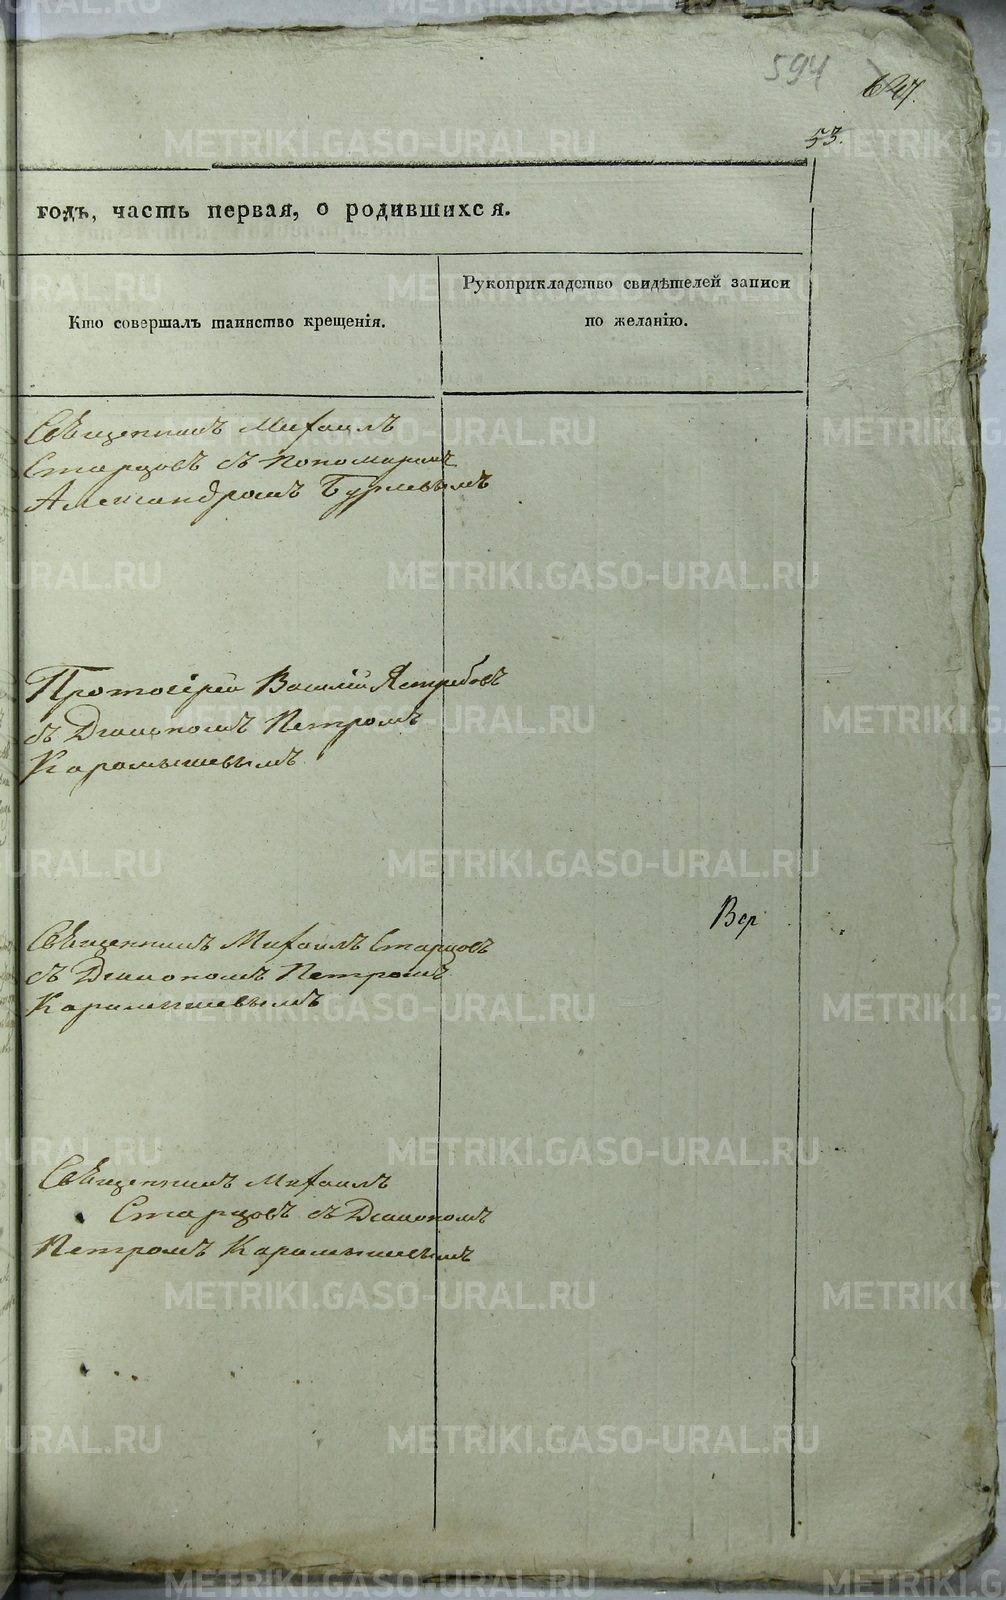 594
647.
53.
годъ, часть первая, о родившихся.
Кто совершалъ таинство крещенія.
Рукоприкладство свидѣтелей записи
по желанію.
Священникъ Михаилъ
Старцовъ съ Пономаремъ
Александромъ Бурмевымъ
Протоіерей Василій Ястребовъ
съ Діакономъ Петромъ
Карамышевымъ
Вер
Священникъ Михаилъ Старцовъ
съ Діакономъ Петромъ
Карамышевымъ
Священникъ Михаилъ
Старцовъ съ Діакономъ
Петромъ Карамышевымъ
METRIKI.GASO-URAL.RU